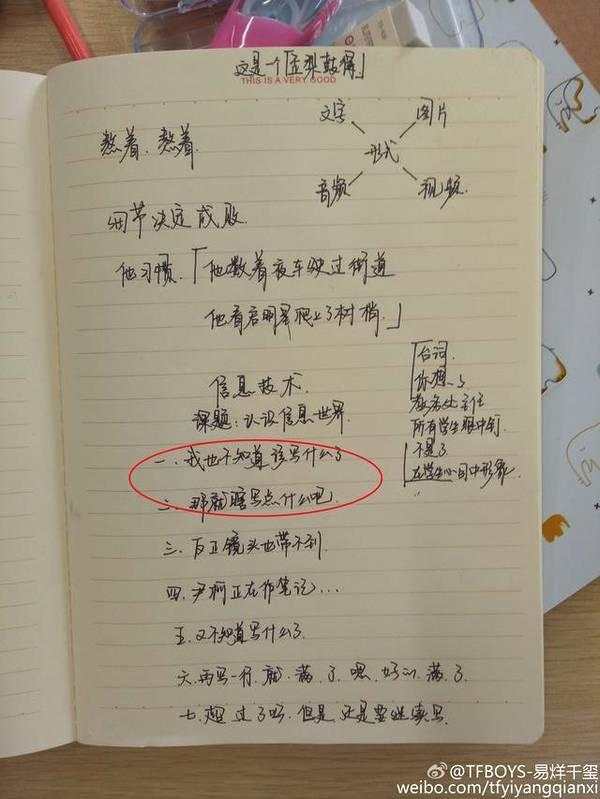 这是一个「孟梨鼓得」
THIS IS A VERY GOOD
文字 图片
形式
音频 视频
熬着、熬着
细节决定成败
他习惯.「他数着夜车驶过街道
他看启明星爬上了树梢.」
信息技术.
课题:认识信息世界.
一.我也不知道该写什么了
二.那就瞎写点什么吧.
三.反正镜头也带不到.
四.尹柯正在作笔记...
五.又不知道写什么了.
六.再写一行.就.满.了.嗯.好的.满.了.
七.超过了吗.但是.还是要继续写.
台词.
你想.
教务处主任
所有学生眼中的
不是了
在学生心目中形象.
@TFBOYS-易烊千玺
weibo.com/tfyiyangqianxi